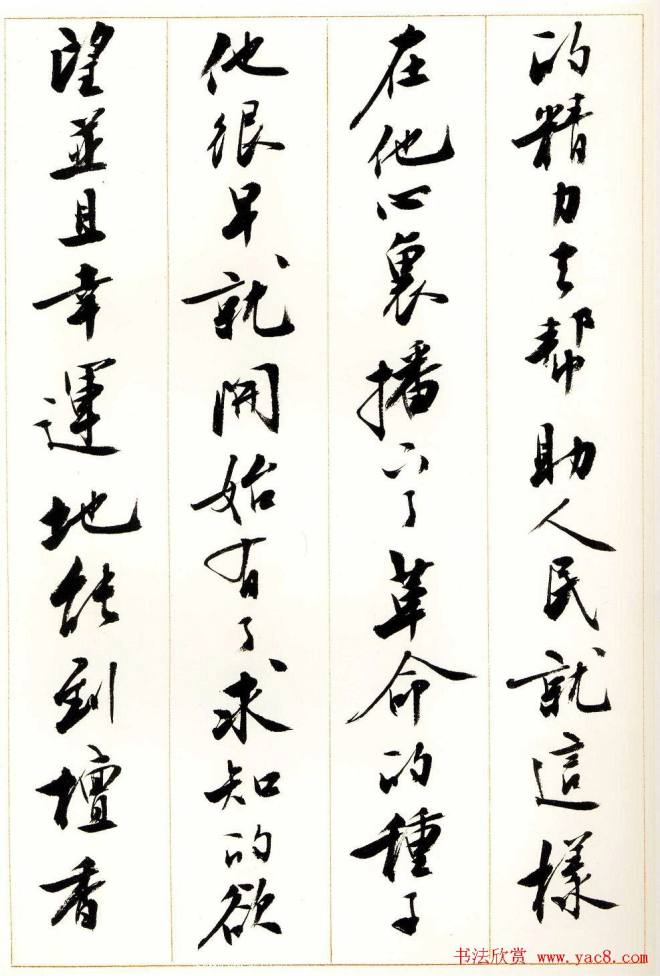 的精力去幫助人民就這樣
在他心裏播下了革命的種子
他很早就開始有了求知的欲
望並且幸運地能到檀香
书法欣赏 www.yac8.com